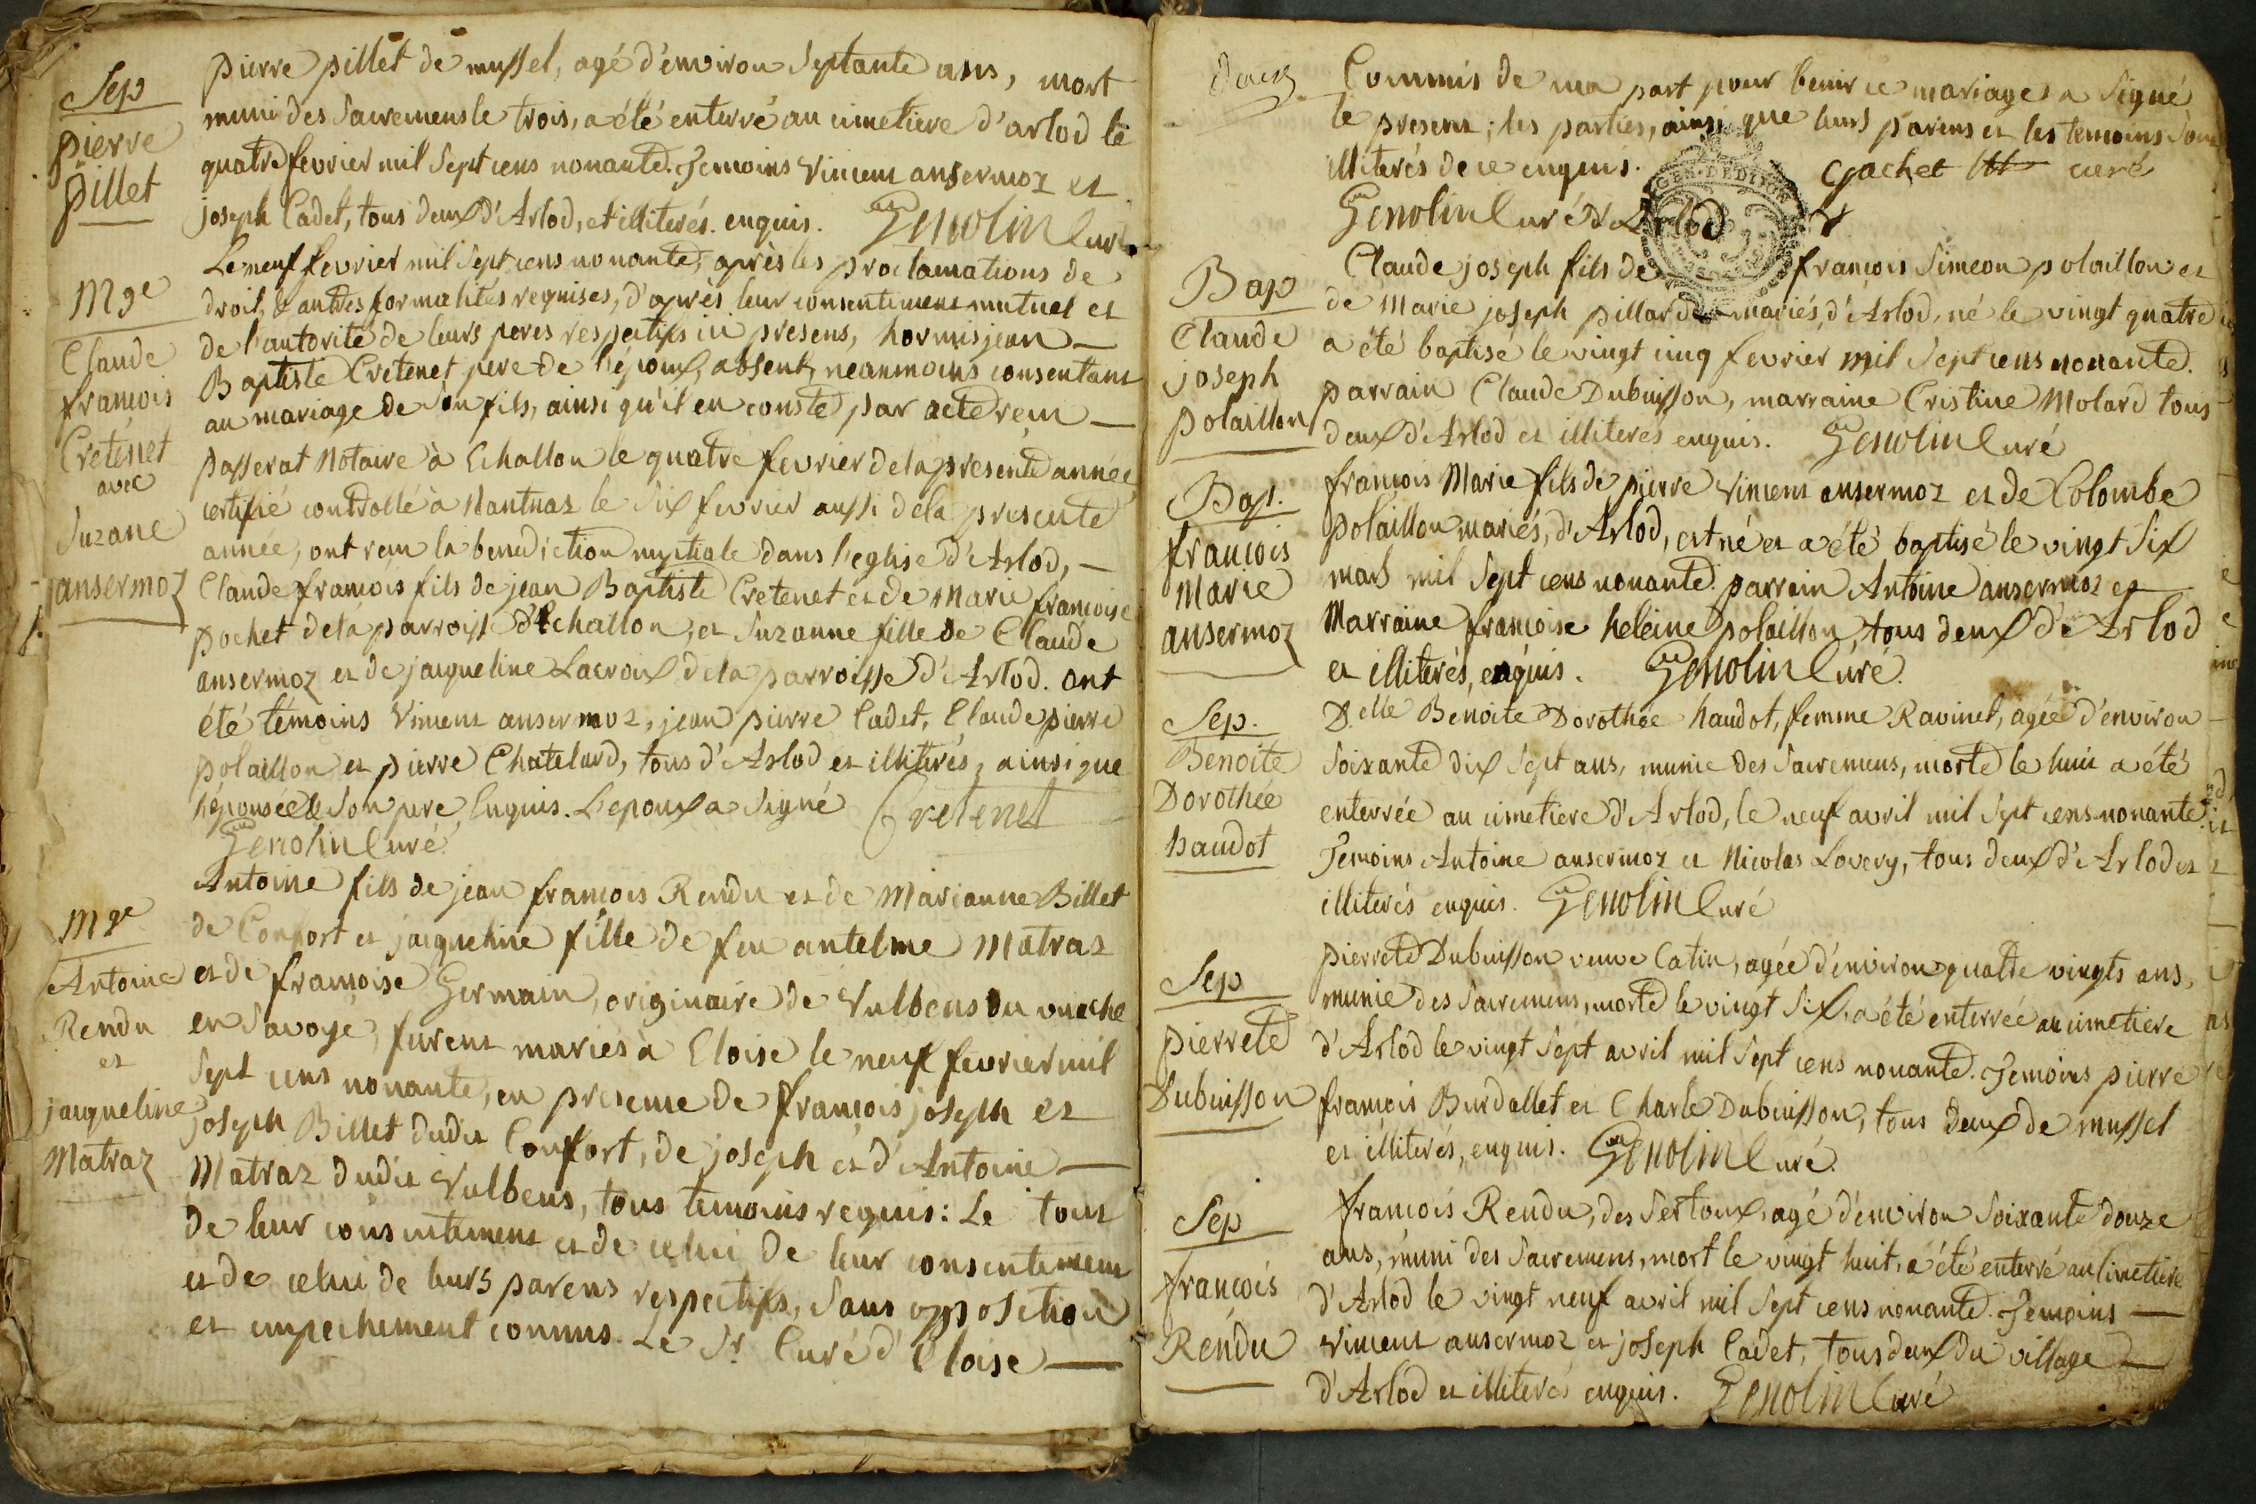 Sep
pierre
pillet
pierre pillet de mussel, agé d'environ septante ans, mort
muni des sacremens le trois, a été enterré au cimetiere d'arlod le
quatre fevrier mil sept cens nonante. Temoins vincent ansermoz et
joseph Cadet, tous deux d'Arlod, et illiterés enquis. Genolin Curé
Mge
Claude
francois
Cretenet
avec
Suzane
ansermoz
Le neuf fevrier mil sept cens nonante, après les proclamations de
droit, & autres formalités requises, d'après leur consentement mutuel et
de l'autorité de leurs peres respectifs ici presens, hormis jean
Baptiste Cretenet pere de l'époux, absent, neanmoins consentant
au mariage de son fils, ainsi qu'il en conste par acte recu
passerat Notaire à Echallon le quatre fevrier de la presente année
certifié controllé à Nantuaz le six fevrier aussi de la presente
année, ont recu la benediction nuptiale dans l'eglise d'Arlod,
Claude francois fils de jean Baptiste Cretenet et de Marie francoise
pochet de la parroisse d'Echallon, et Suzanne fille de Claude
ansermoz et de jacqueline Lacroix de la parroisse d'Arlod. ont
été témoins vincent ansermoz, jean pierre Cadet, Claude pierre
polaillon et pierre Chatelard, tous d'Arlod et illiterés, ainsi que
l'épousée & son pere, Enquis. L'epoux a signé Cretenet
Genolin Curé
Mge
Antoine
Rendu
et
jacqueline
Matraz
Antoine fils de jean francois Rendu et de Marianne Billet
de Confort et jacqueline fille de feu antelme Matraz
et de francoise Germain, originaire de Vulbens du vuache
en Savoye, furent mariés à Eloise le neuf fevrier mil
sept cens nonante, en presence de francois joseph et
joseph Billet dudit Confort, de joseph et d'Antoine
Matraz dudit Vulbens, tous temoins requis: Le tout
de leur consentement et de celui de leur consentement
et de celui de leurs parens respectifs, sans opposition
et empechement connus. Le Sr. Curé d'Eloise
Commis de ma part pour benir ce mariage a signé
le present; les parties, ainsi que leurs parens et les temoins sont
illiterés de ce enquis. Gachet curé
Genolin Curé d'Arlod
Bap
Claude
joseph
polaillon
Claude joseph fils de francois Simeon polaillon et
de Marie joseph pillard mariés, d'Arlod, né le vingt quatre
a été baptisé le vingt cinq fevrier mil sept cens nonante.
parrain Claude Dubuisson, marraine Cristine Molard tous
deux d'Arlod et illiterés enquis. Genolin Curé
Bap.
francois
Marie
ansermoz
francois Marie fils de pierre vincent ansermoz et de Colombe
polaillon mariés, d'Arlod, est né et a été baptisé le vingt six
mars mil sept cens nonante. parrain Antoine ansermoz et
Marraine francoise heleine polaillon, tous deux d'Arlod
et illiterés, enquis. Genolin Curé.
Sep.
Benoite
Dorothée
haudot
D.elle Benoite Dorothée haudot, femme Ravinet, agée d'environ
soixante dix sept ans, munie des sacremens, morte le huit a été
enterrée au cimetiere d'Arlod, le neuf avril mil sept cens nonante.
Temoins Antoine ansermoz et Nicolas Lovery, tous deux d'Arlod et
illiterés enquis. Genolin Curé
Sep
pierrete
Dubuisson
pierrete Dubuisson veuve Catin, agée d'environ quatre vingts ans,
munie des sacremens, morte le vingt six, a été enterrée au cimetiere
d'Arlod le vingt sept avril mil sept cens nonante. Temoins pierre
francois Burdallet et Charle Dubuisson, tous deux de mussel
et illiterés, enquis. Genolin Curé.
Sep
francois
Rendu
francois Rendu, des Sertoux, agé d'environ soixante douze
ans, muni des sacremens, mort le vingt huit, a été enterré au Cimetiere
d'Arlod le vingt neuf avril mil sept cens nonante. Temoins
vincent ansermoz et joseph Cadet, tous deux du village
d'Arlod et illiterés enquis. Genolin Curé